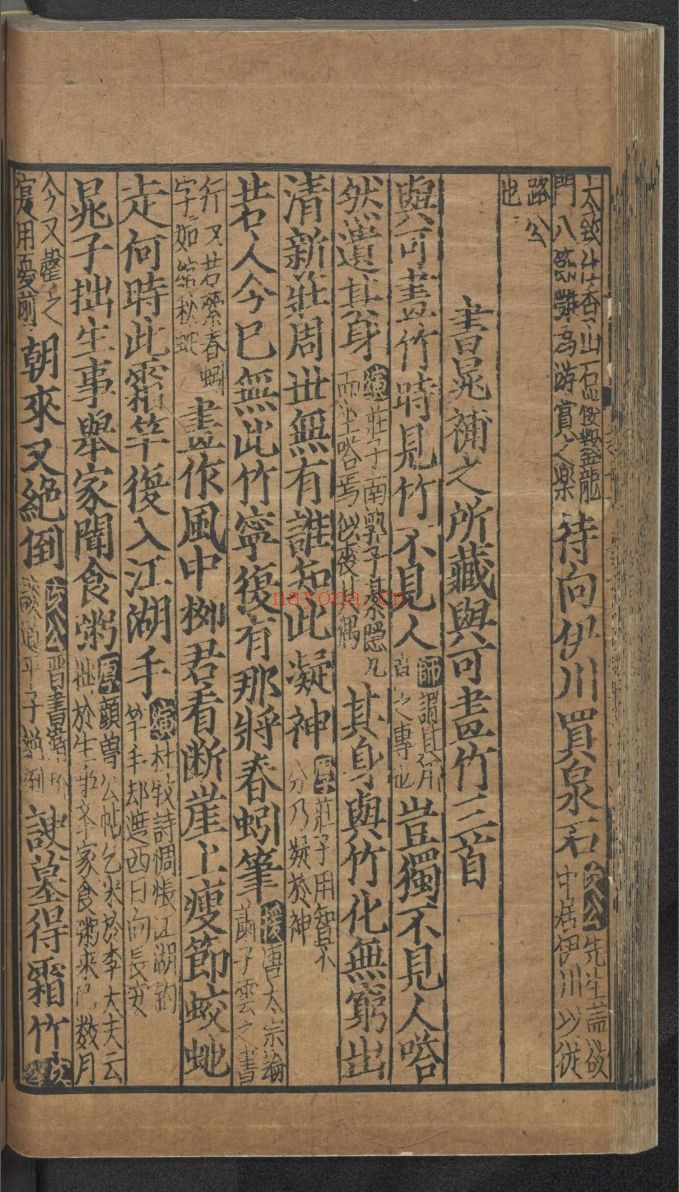 門八節灘為游賞之樂待向伊川買泉石次公先生蓋欲卜居伊川以從
路公也
書晁補之所藏與可畫竹三首
與可畫竹時見竹不見人師之專也豈獨不見人嗒
然遺其身演莊子南郭子綦隱几而坐嗒焉似喪其偶其身與竹化無窮出
清新莊周世無有誰知此凝神厚莊子用智不分乃凝於神
若人今已無此竹寧復有那將春蚓筆援唐太宗論蕭子雲之書
行又若縈春蚓字如綰秋蛇畫作風中栁君看断崖上瘦節蛟虵
走何時此霜竿復入江湖手演杜牧詩惆悵江湖釣竿手却遮西日向長安
晁子拙生事舉家聞食粥厚顏魯公帖乞米於李太夫云拙於生事舉家食粥來已數月
今又罄乏實用憂煎朝來又絕倒次公晉書衛玠談道平子絕倒諛墓得霜竹次公